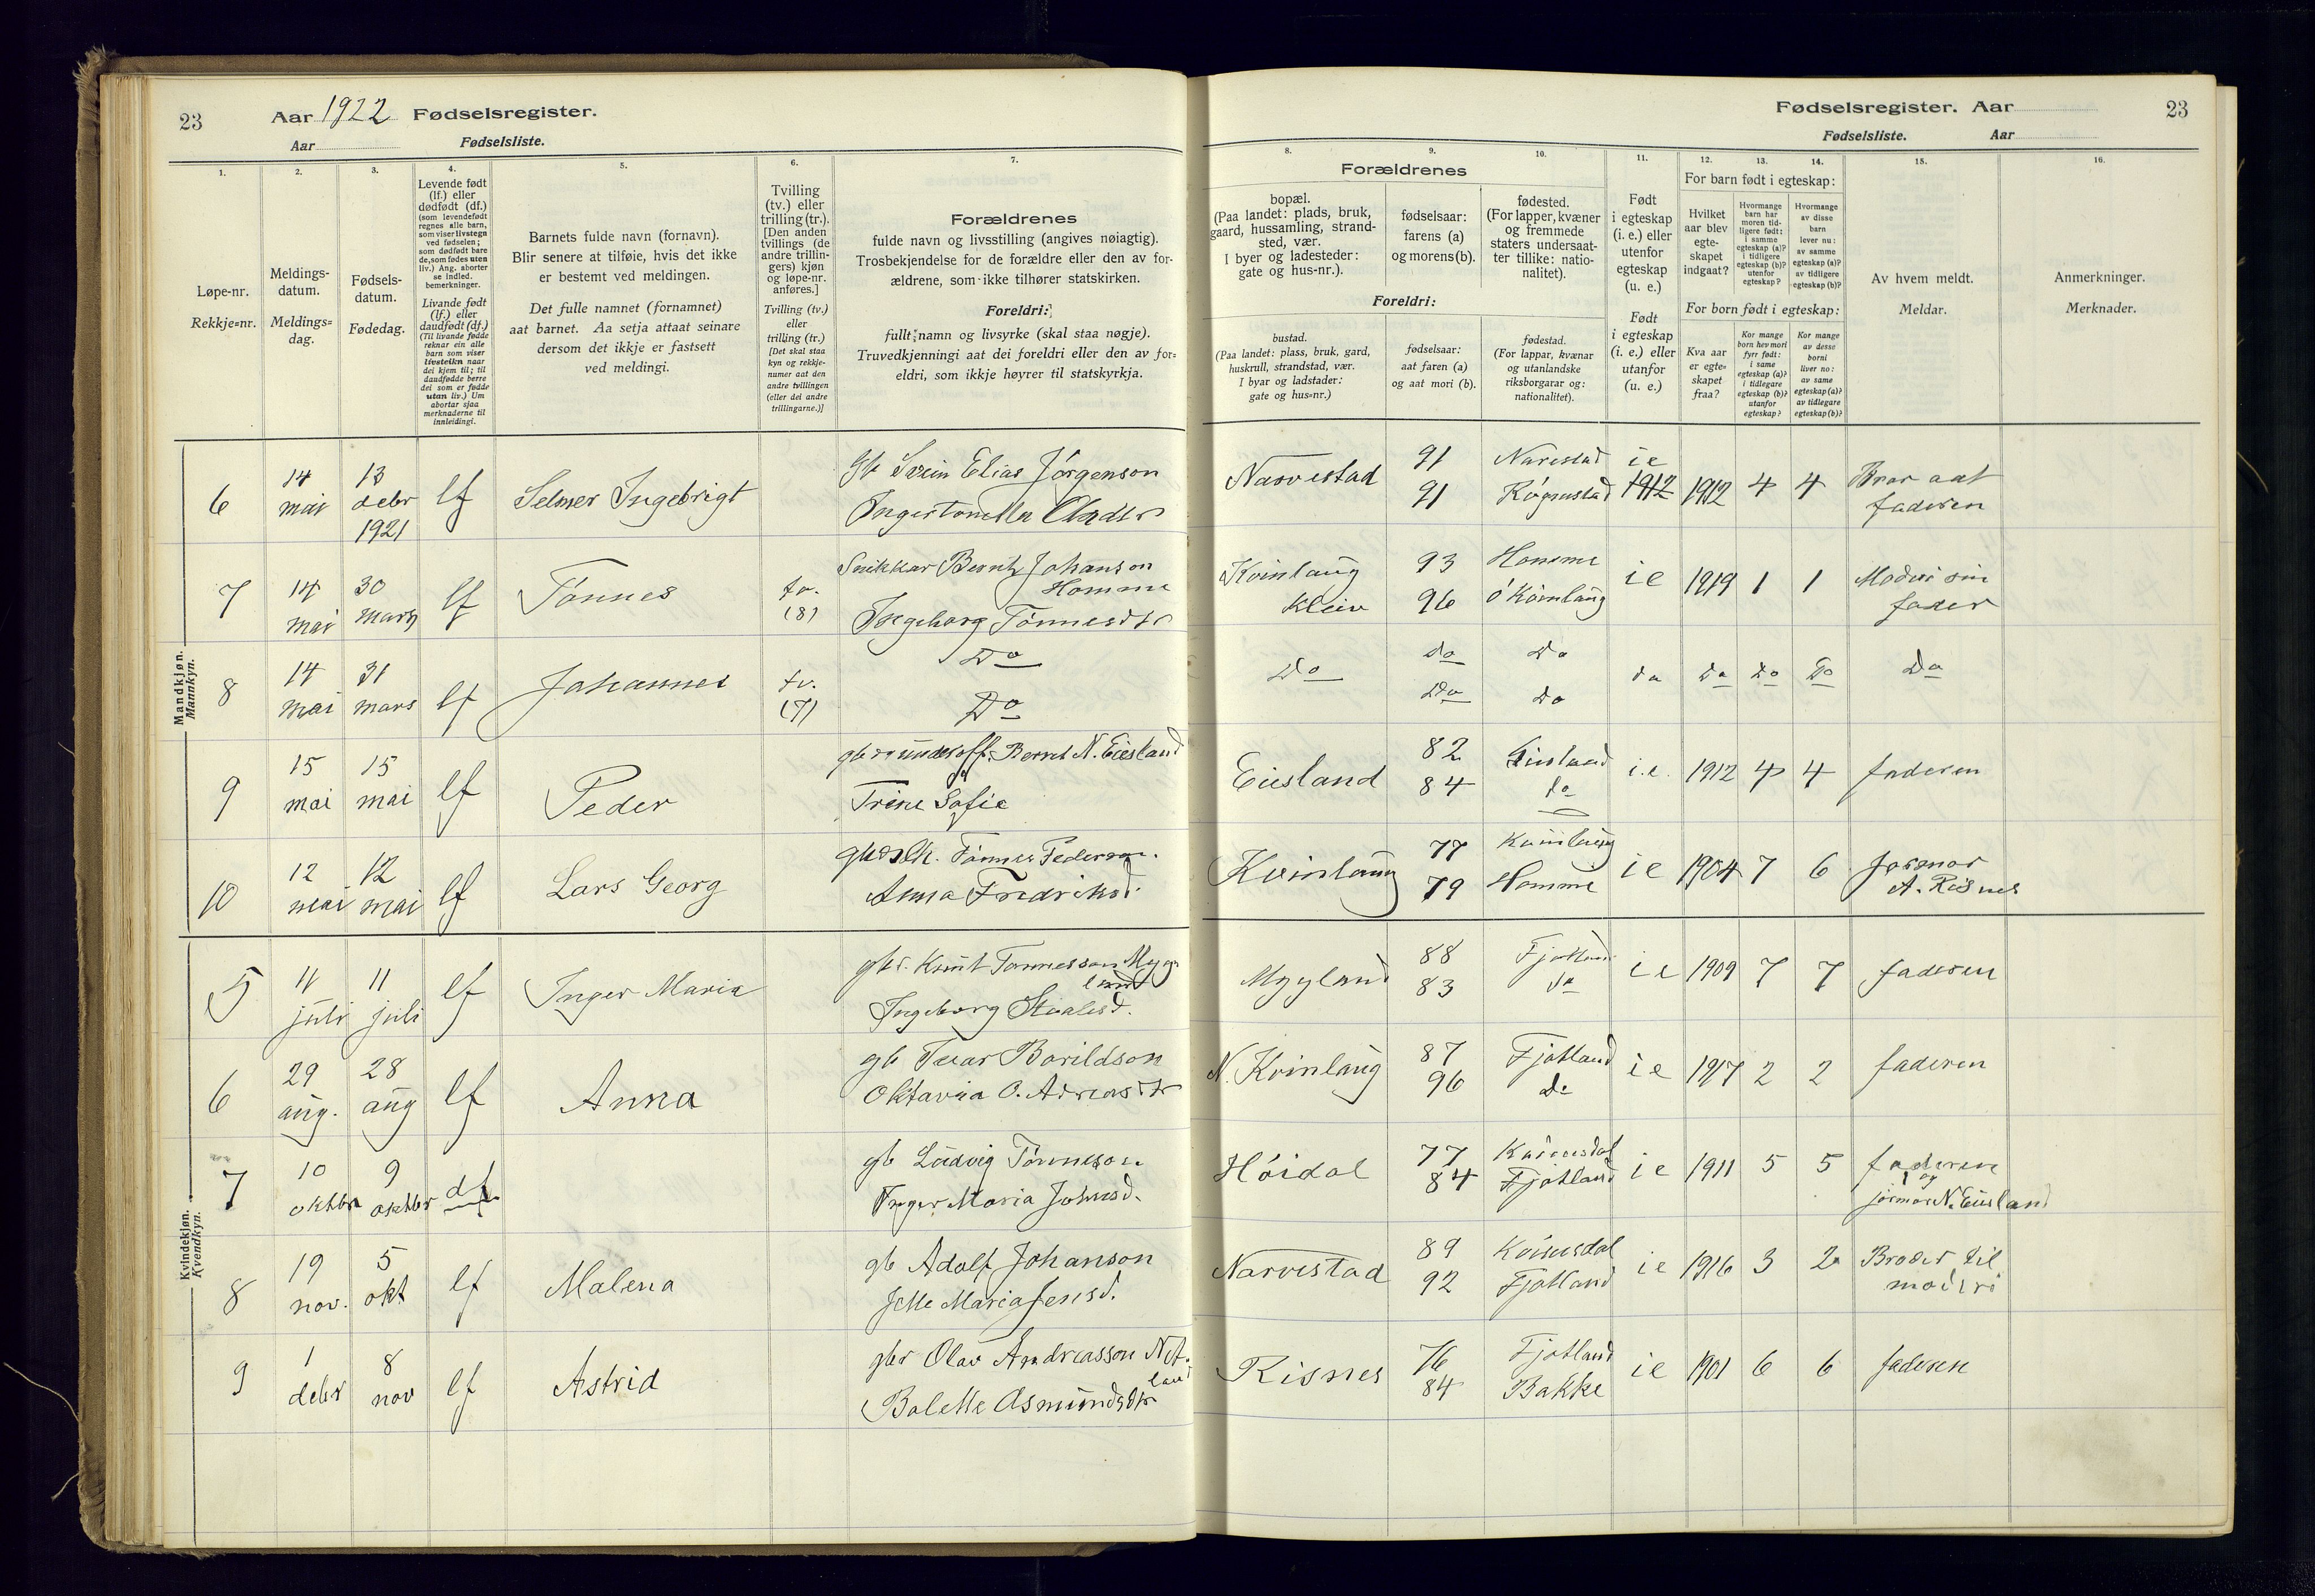 23
Aar 1922 Fødselsregister.
Aar
Fødselsliste.
1.
2.
3.
4.
5.
6.
7.
Løpe-nr.
Rekkje=nr.
Meldings-
datum.
Meldings=
dag.
Fødsels-
datum.
Fødedag.
Levende født
(lf.) eller
dødfødt (df.)
(som levendefødt
regnes alle barn,
som viser livstegn
ved fødselen;
som dødfødt bare
de, som fødes uten
liv.) Ang. aborter
se indled.
bemerkninger.
Livande født
(lf.) eller
daudfødt (df.)
(Til livande fødde
reknar ein alle
barn som viser
livsteikn naar
dei kjem til; til
daudfødde berre
dei som er fødde
utan liv.) Um
abortar sjaa
merknaderne til
innleidingi.
Barnets fulde navn (fornavn).
Blir senere at tilføie, hvis det ikke
er bestemt ved meldingen.
Det fulle namnet (fornamnet)
aat barnet. Aa setja attaat seinare
dersom det ikkje er fastsett
ved meldingi.
Tvilling
(tv.) eller
trilling (tr.).
[Den anden
tvillings (de
andre trillin-
gers) kjøn
og løpe-nr.
anføres.]
Tvilling (tv.)
eller
trilling (tr.)
[Det skal staa
kyn og rekkje-
numer aat den
andre tvillingen
(eller dei andre
trillingarne.)]
Forældrenes
fulde navn og livsstilling (angives nøiagtig).
Trosbekjendelse for de forældre eller den av for-
ældrene, som ikke tilhører statskirken.
Foreldri:
fullt namn og livsyrke (skal staa nøgje).
Truvedkjenningi aat dei foreldri eller den av for=
eldri, som ikkje høyrer til statskyrkja.
Mandkjøn.
Mannkyn.
6
14
mai
13
debr
1921
lf
Selmer Ingebrigt
Elias Jørgenson
7
14
mai
30
mars
lf
Tønnes
tv.
(8)
Snikkar Bernt Johanson
Homme
Ingeborg Tønnesdtr
8
14
mai
31
mars
lf
Johannes
tv.
(7)
Do
Do
9
15
mai
15
mai
lf
Peder
Bernt N. Eiesland
Trine Sofie
10
12
mai
12
mai
lf
Lars Georg
Tønnes Pederson.
Anna Fredriksd.
Kvindekjøn.
Kvendkyn.
5
11
juli
11
juli
lf
Inger Maria
gbr. Knut Tønnesson Myg
land
Ingeborg Staalesd.
6
29
aug.
28
aug
lf
Anna
gb Ivar Borildson
Oktavia O. Adreasdtr
7
10
oktbr
9
oktbr
df.
gb Ludvig Tønneson.
Inger Maria Johnsd.
8
19
nov.
5
okt
lf
Malena
gb Adolf Johanson
Maria Jensd.
9
1
debr
8
nov
lf
Astrid
gbr Olav Andreasson Net
land
Bolette Asmundsdtr
Fødselsregister. Aar
23
Fødselsliste.
Aar
8.
9.
10.
11.
12.
13.
14.
15.
16.
Forældrenes
bopæl.
(Paa landet: plads, bruk,
gaard, hussamling, strand-
sted, vær.
I byer og ladesteder:
gate og hus-nr.).
fødselsaar:
farens (a)
og morens (b).
fødested.
(For lapper, kvæner
og fremmede
staters undersaat-
ter tillike: natio-
nalitet).
Foreldri:
bustad.
(Paa landet: plass, bruk, gard,
huskrull, strandstad, vær.
I byar og ladstader:
gate og hus=nr.)
fødselsaar:
aat faren (a)
og aat mori (b).
fødestad.
(For lappar, kvænar
og utanlandske
riksborgarar og:
nationalitet).
Født
i egteskap
(i. e.) eller
utenfor
egteskap
(u. e.)
Født
i egteskap
(i. e.) eller
utanfor
(u. e.)
For barn født i egteskap:
Hvilket
aar blev
egte-
skapet
indgaat?
Hvormange
barn har
moren tid-
ligere født:
i samme
egteskap (a)?
i tidligere
egteskap (b)?
utenfor
egteskap?
Hvormange
av disse
barn
lever nu:
av samme
egteskap (a)?
av tidligere
egteskap (b)?
For born født i egteskap:
Kva aar
er egte=
skapet
fraa?
Kor mange
born hev mori
fyrr født:
i same
egteskap (a)?
i tidlegare
egteskap (b)?
utanfor
egteskap?
Kor mange
av desse
borni
liver no:
av same
egteskap (a)?
av tidlegare
egteskap (b)?
Av hvem meldt.
Meldar.
Anmerkninger.
Merknader.
Narvestad
91
91
Narvestad
ie
1912
1912
4
4
Bror aat
faderen
Kvinlaug
Kleiv
93
96
Homme
Kvinlaug
ie
1919
1
1
Moderi sin
fader
Do
do
Do
Do
Do
do
Do
Do
Do
Do
Eiesland
82
84
Eiesland
do
i.e.
1912
4
4
faderen
Kvinlaug
77
79
Kvinlaug
Homme
ie
1904
7
6
Jormor
A. Risnes
Mygland
88
83
Fjotland
do
ie
1909
7
7
faderen
N. Kvinlaug
87
96
Fjotland
do
ie
1917
2
2
faderen
Høidal
77
84
Kvinesdal
Fjotland
ie
1911
5
5
faderen
og
jormor N. Eiesland
Narvestad
89
92
Kvinesdal
Fjotland
ie
1916
3
2
Broder til
moderi
Risnes
76
84
Fjotland
Bakke
ie
1901
6
6
faderen